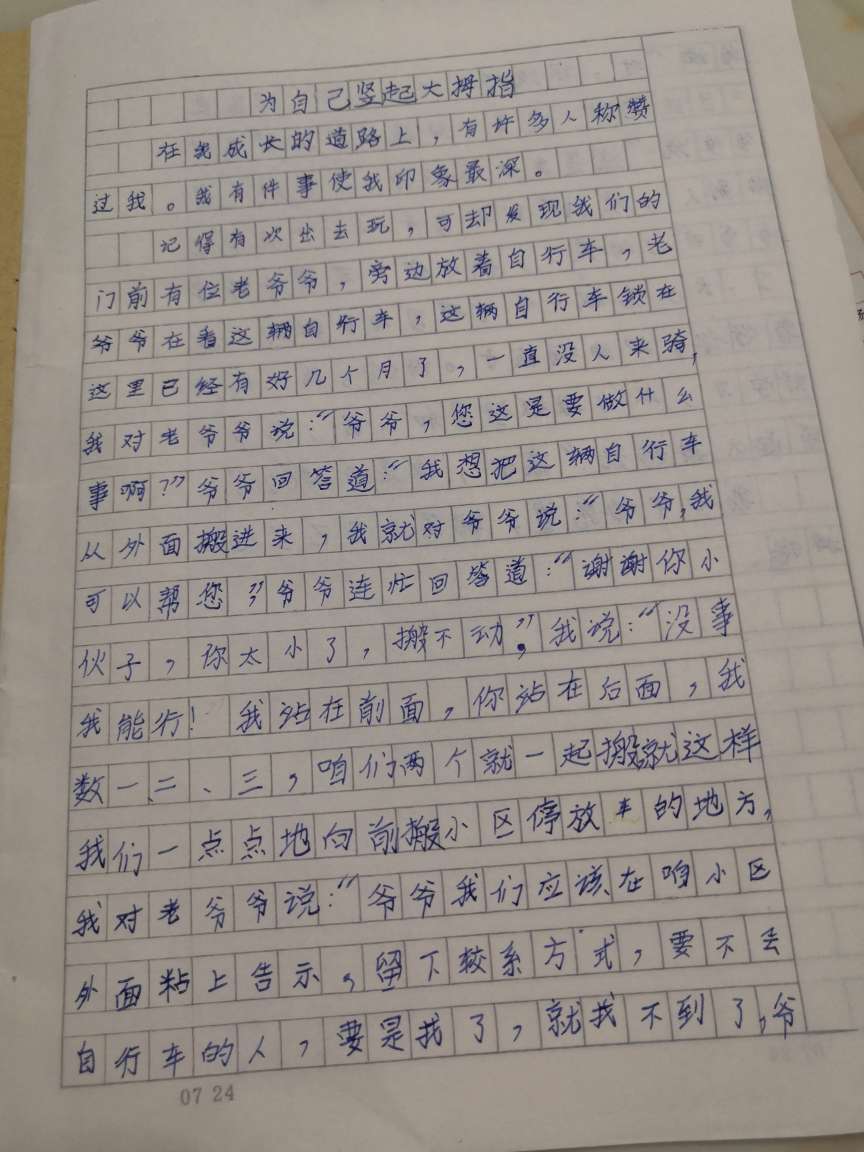 为自己竖起大拇指
在我成长的道路上，有许多人称赞
过我。我有件事使我印象最深。
记得有次出去玩，可却发现我们的
门前有位老爷爷，旁边放着自行车，老
爷爷在看这辆自行车，这辆自行车锁在
这里已经有好几个月了，一直没人来骑，
我对老爷爷说：“爷爷，您这是要做什么
事啊？”爷爷回答道：“我想把这辆自行车
从外面搬进来，我就对爷爷说：“爷爷，我
可以帮您”，爷爷连忙回答道：“谢谢你小
伙子，你太小了，搬不动”。我说：“没事
我能行！我站在前面，你站在后面，我
数一、二、三，咱们两个就一起搬就这样
我们一点点地向前搬小区停放车的地方，
我对老爷爷说：“爷爷我们应该在咱小区
外面粘上告示，留下较系方式，要不丢
自行车的人，要是找了，就找不到了，爷
07 24